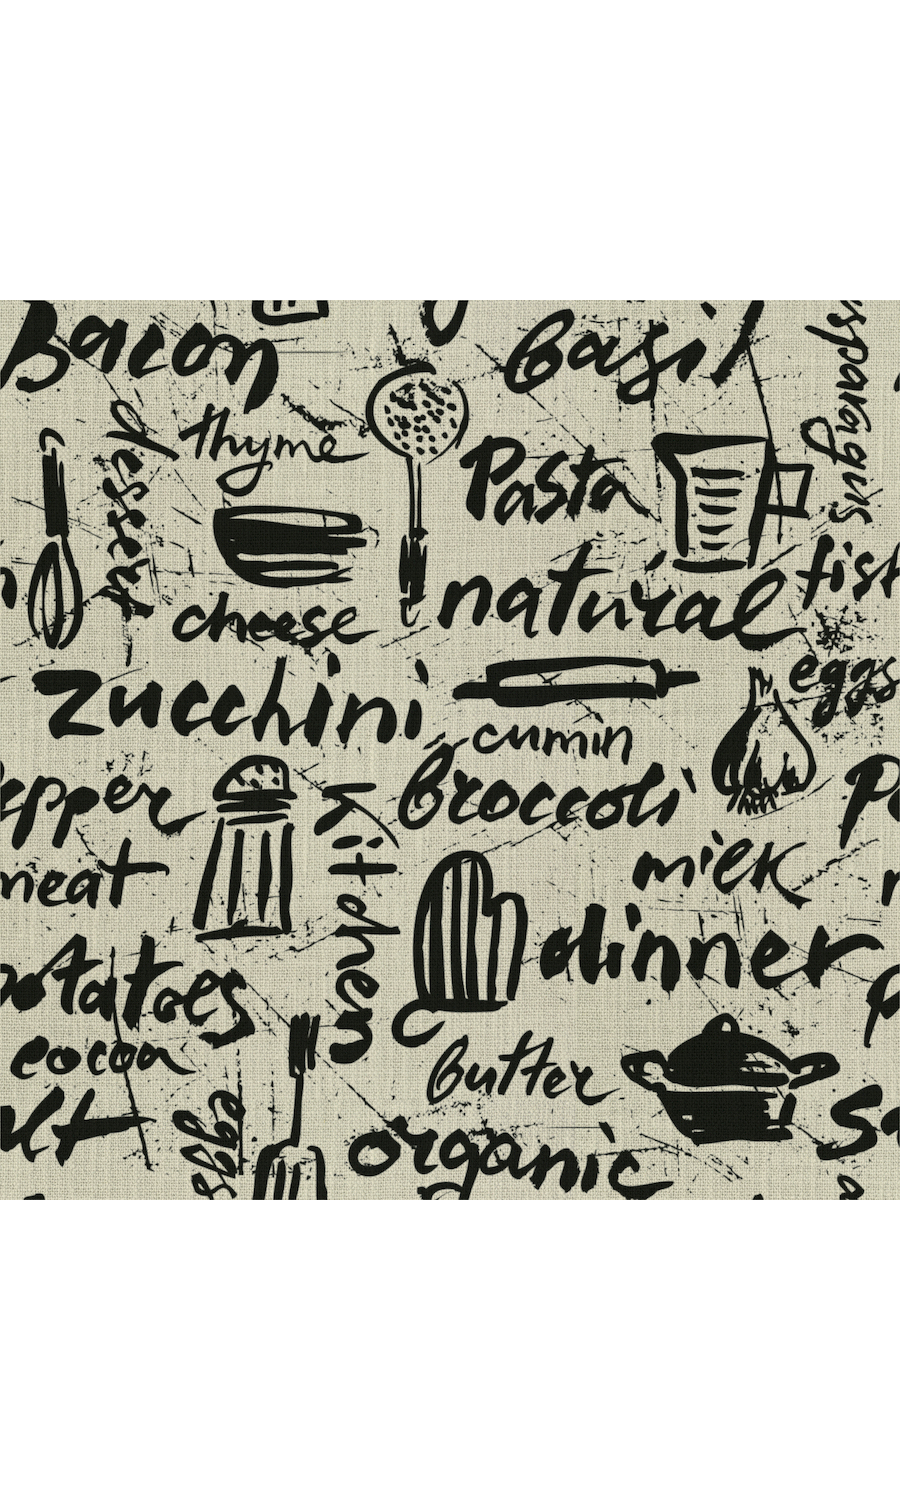 Bacon
Basil
sparagus
dessert
thyme
Pasta
natural
fish
cheese
eggs
zucchini
cumin
epper
Kitchen
broccoli
meat
milk
dinner
otatoes
cocoa
butter
alt
eggs
organic